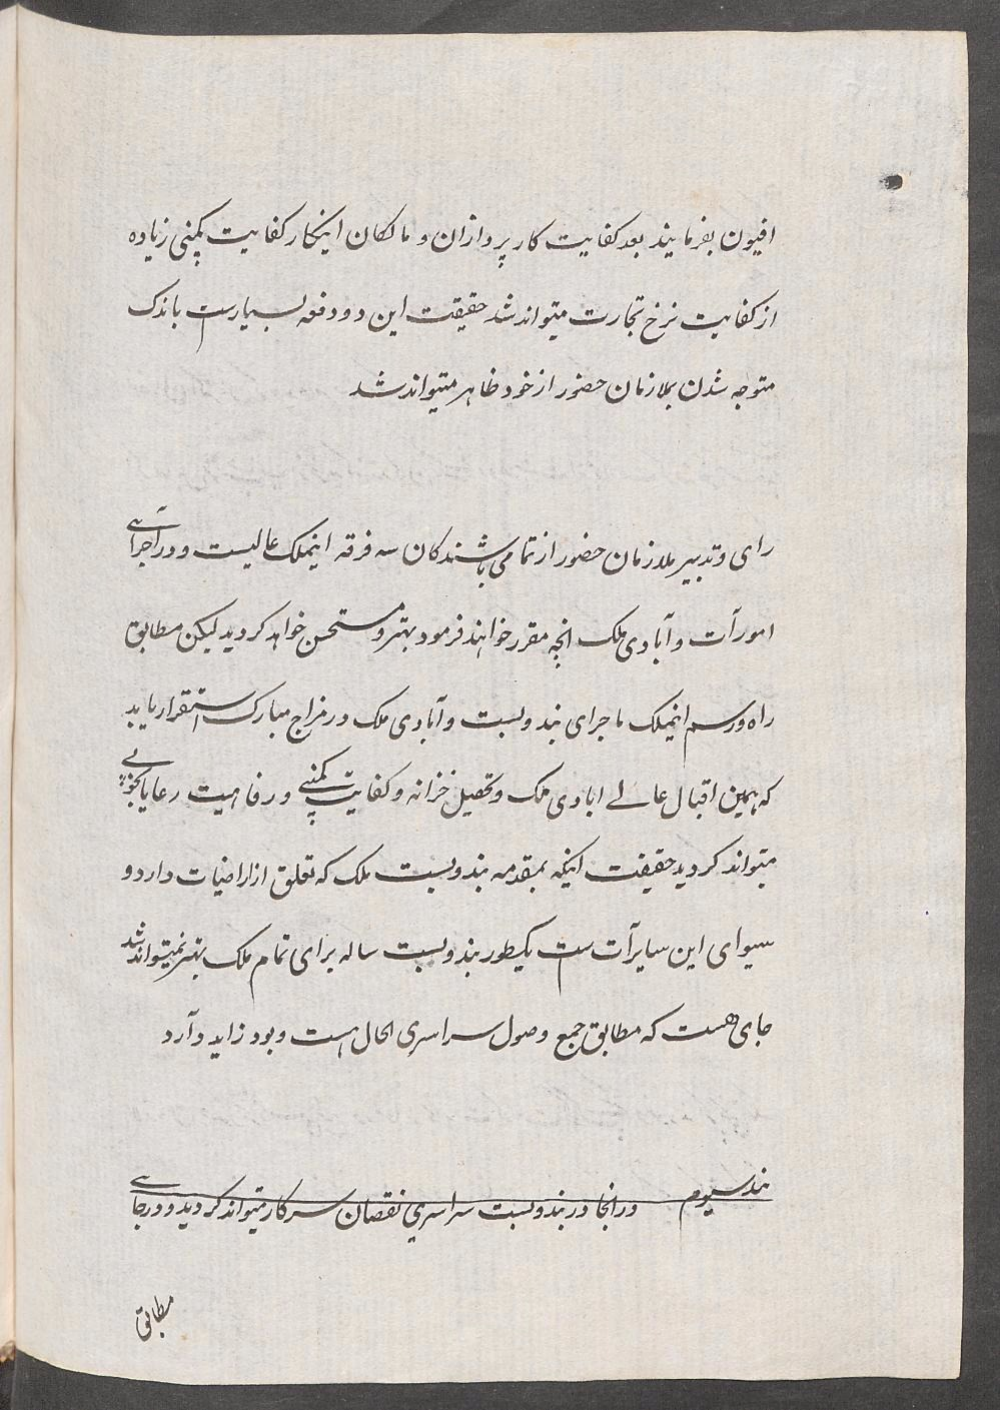 افیون بفرمایند بعد کفایت کارپردازان و مالکان اینکار کفایت کمپنی زیاده
از کفایت نرخ تجارت میتواند شد حقیقت این دو دفعه بسیارست باندک
متوجه شدن بملازمان حضور از خود ظاهر میتواند شد
رای و تدبیر ملازمان حضور از تمامی باشندکان سه فرقه اینملک عالیست و در اجرای
امورآت و آبادی ملک انچه مقرر خواهند فرمود بهتر و مستحسن خواهد کردید لیکن مطابق
راه و رسم اینملک ماجرای بندوبست و آبادی ملک در مزاج مبارک استقرار یابد
که بهمین اقبال عالے ابادی ملک و تحصیل خزانه و کفایت کمپنی و رفاهیت رعایا بخوبی
میتواند کردید حقیقت اینکه بمقدمه بندوبست ملک که تعلق از اراضیات دارد و
سیوای این سایرآت ست یکطور بندوبست ساله برای تمام ملک بهتر نمیتواند شد
جای هست که مطابق جمع وصول سراسری الحال هست و بود زاید دارد
بند سیوم در انجا در بندوبست سراسری نقصان سرکار میتواند کردید و در جای
مطابق